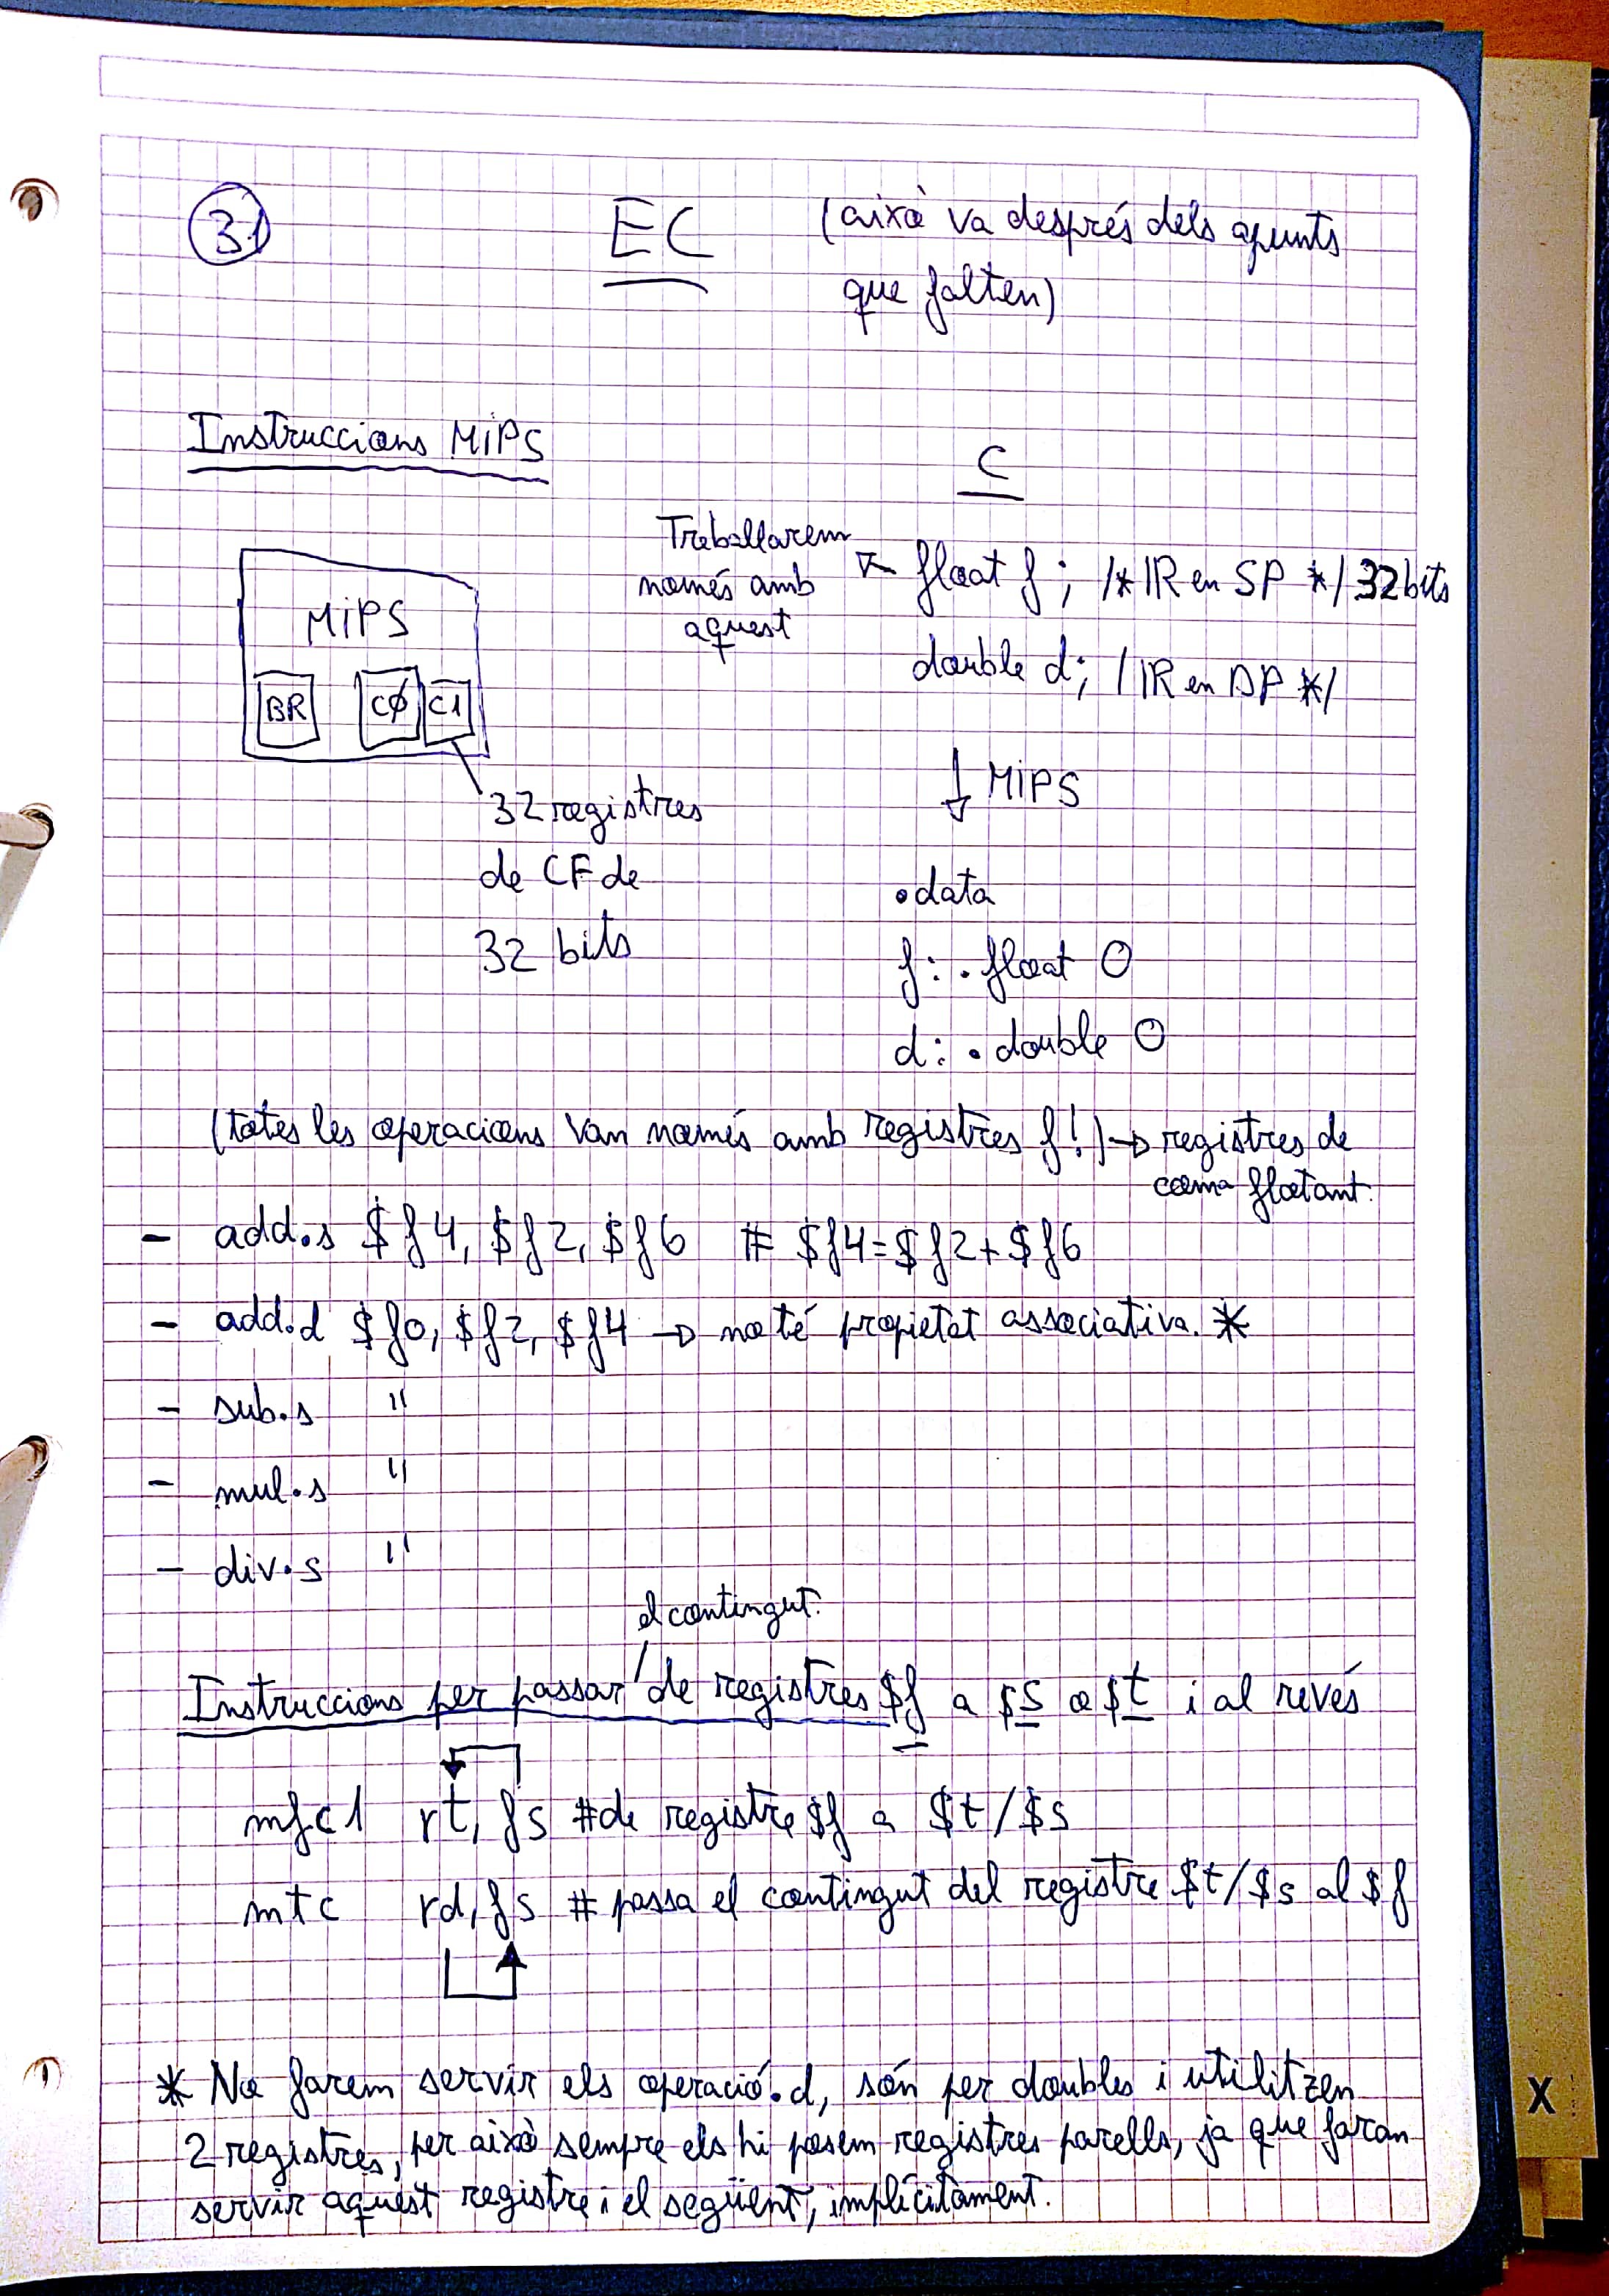 31
EC
(això va després dels apunts
que falten)
Instruccions MIPS
C
MIPS
BR CØ C1
32 registres
de CF de
32 bits
Treballarem
només amb
aquest
float f; /* IR en SP */ 32 bits
double d; / IR en DP */
↓ MIPS
.data
f: .float 0
d: .double 0
(totes les operacions van només amb registres f!) → registres de
coma flotant.
- add.s $f4, $f2, $f6 # $f4=$f2+$f6
- add.d $f0, $f2, $f4 → no té propietat associativa. *
- sub.s "
- mul.s "
- div.s "
el contingut.
Instruccions per passar / de registres $f a $s o $t i al revés
mfc1 rt, fs # de registre $f a $t/$s
mtc rd, fs # passa el contingut del registre $t/$s al $f
* No farem servir els operació.d, són per doubles i utilitzen
2 registres, per això sempre els hi posem registres parells, ja que faran
servir aquest registre i el següent, implícitament.
X